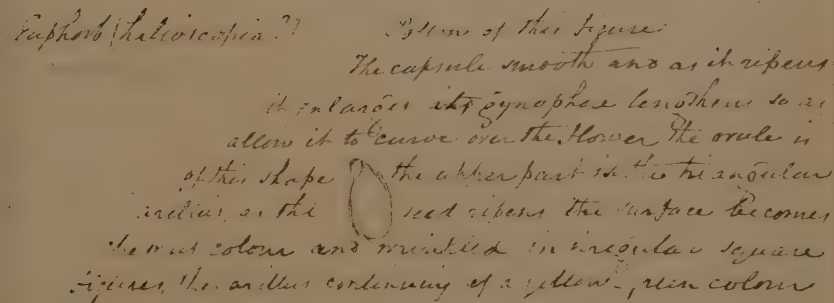 Euphorb (helioscopia?) of this figure
The capsule smooth and as it ripens
it enlarges its gynophore lengthens so as
allow it to curve over the flower the ovule is
of this shape the upper part is the triangular
arillus, as the seed ripens the surface becomes
colour and wrinkled in irregular square
figures, the arillus continuing of a yellow colour